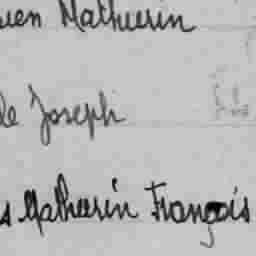 ien Mathurin
le Joseph
s Mathurin François